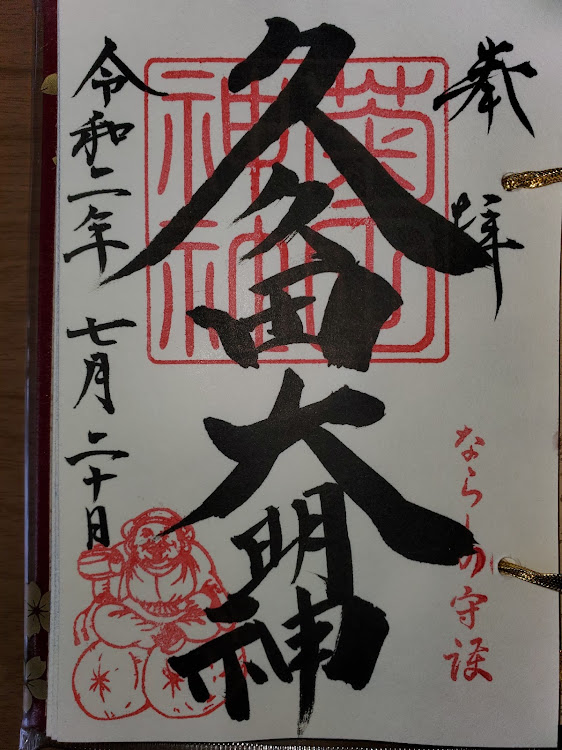 奉拝
ならしの守護
久久田大明神
菊田
神社
令和二年七月二十日